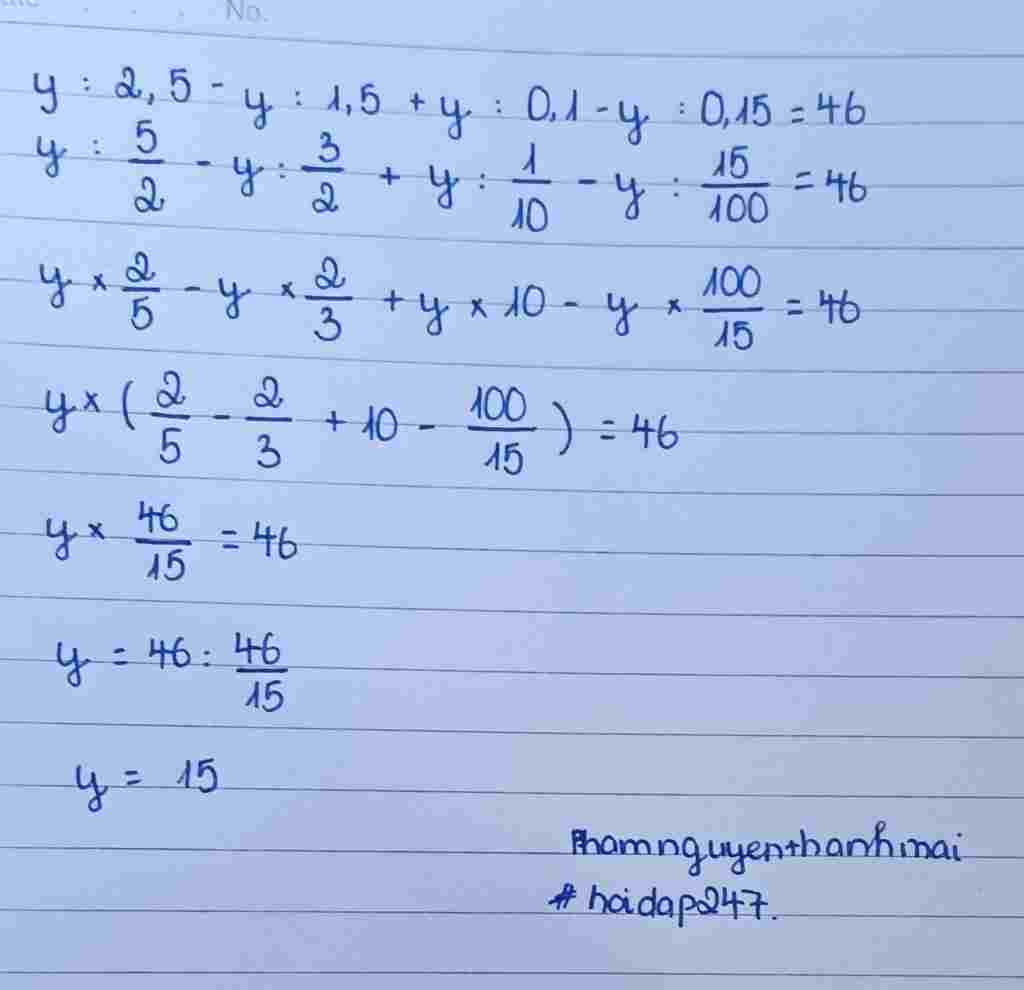 No.
y : 2,5 - y : 1,5 + y : 0,1 - y : 0,15 = 46
y : 5/2 - y : 3/2 + y : 1/10 - y : 15/100 = 46
y × 2/5 - y × 2/3 + y × 10 - y × 100/15 = 46
y × ( 2/5 - 2/3 + 10 - 100/15 ) = 46
y × 46/15 = 46
y = 46 : 46/15
y = 15
Phamnguyenthanhmai
# hoidap247.